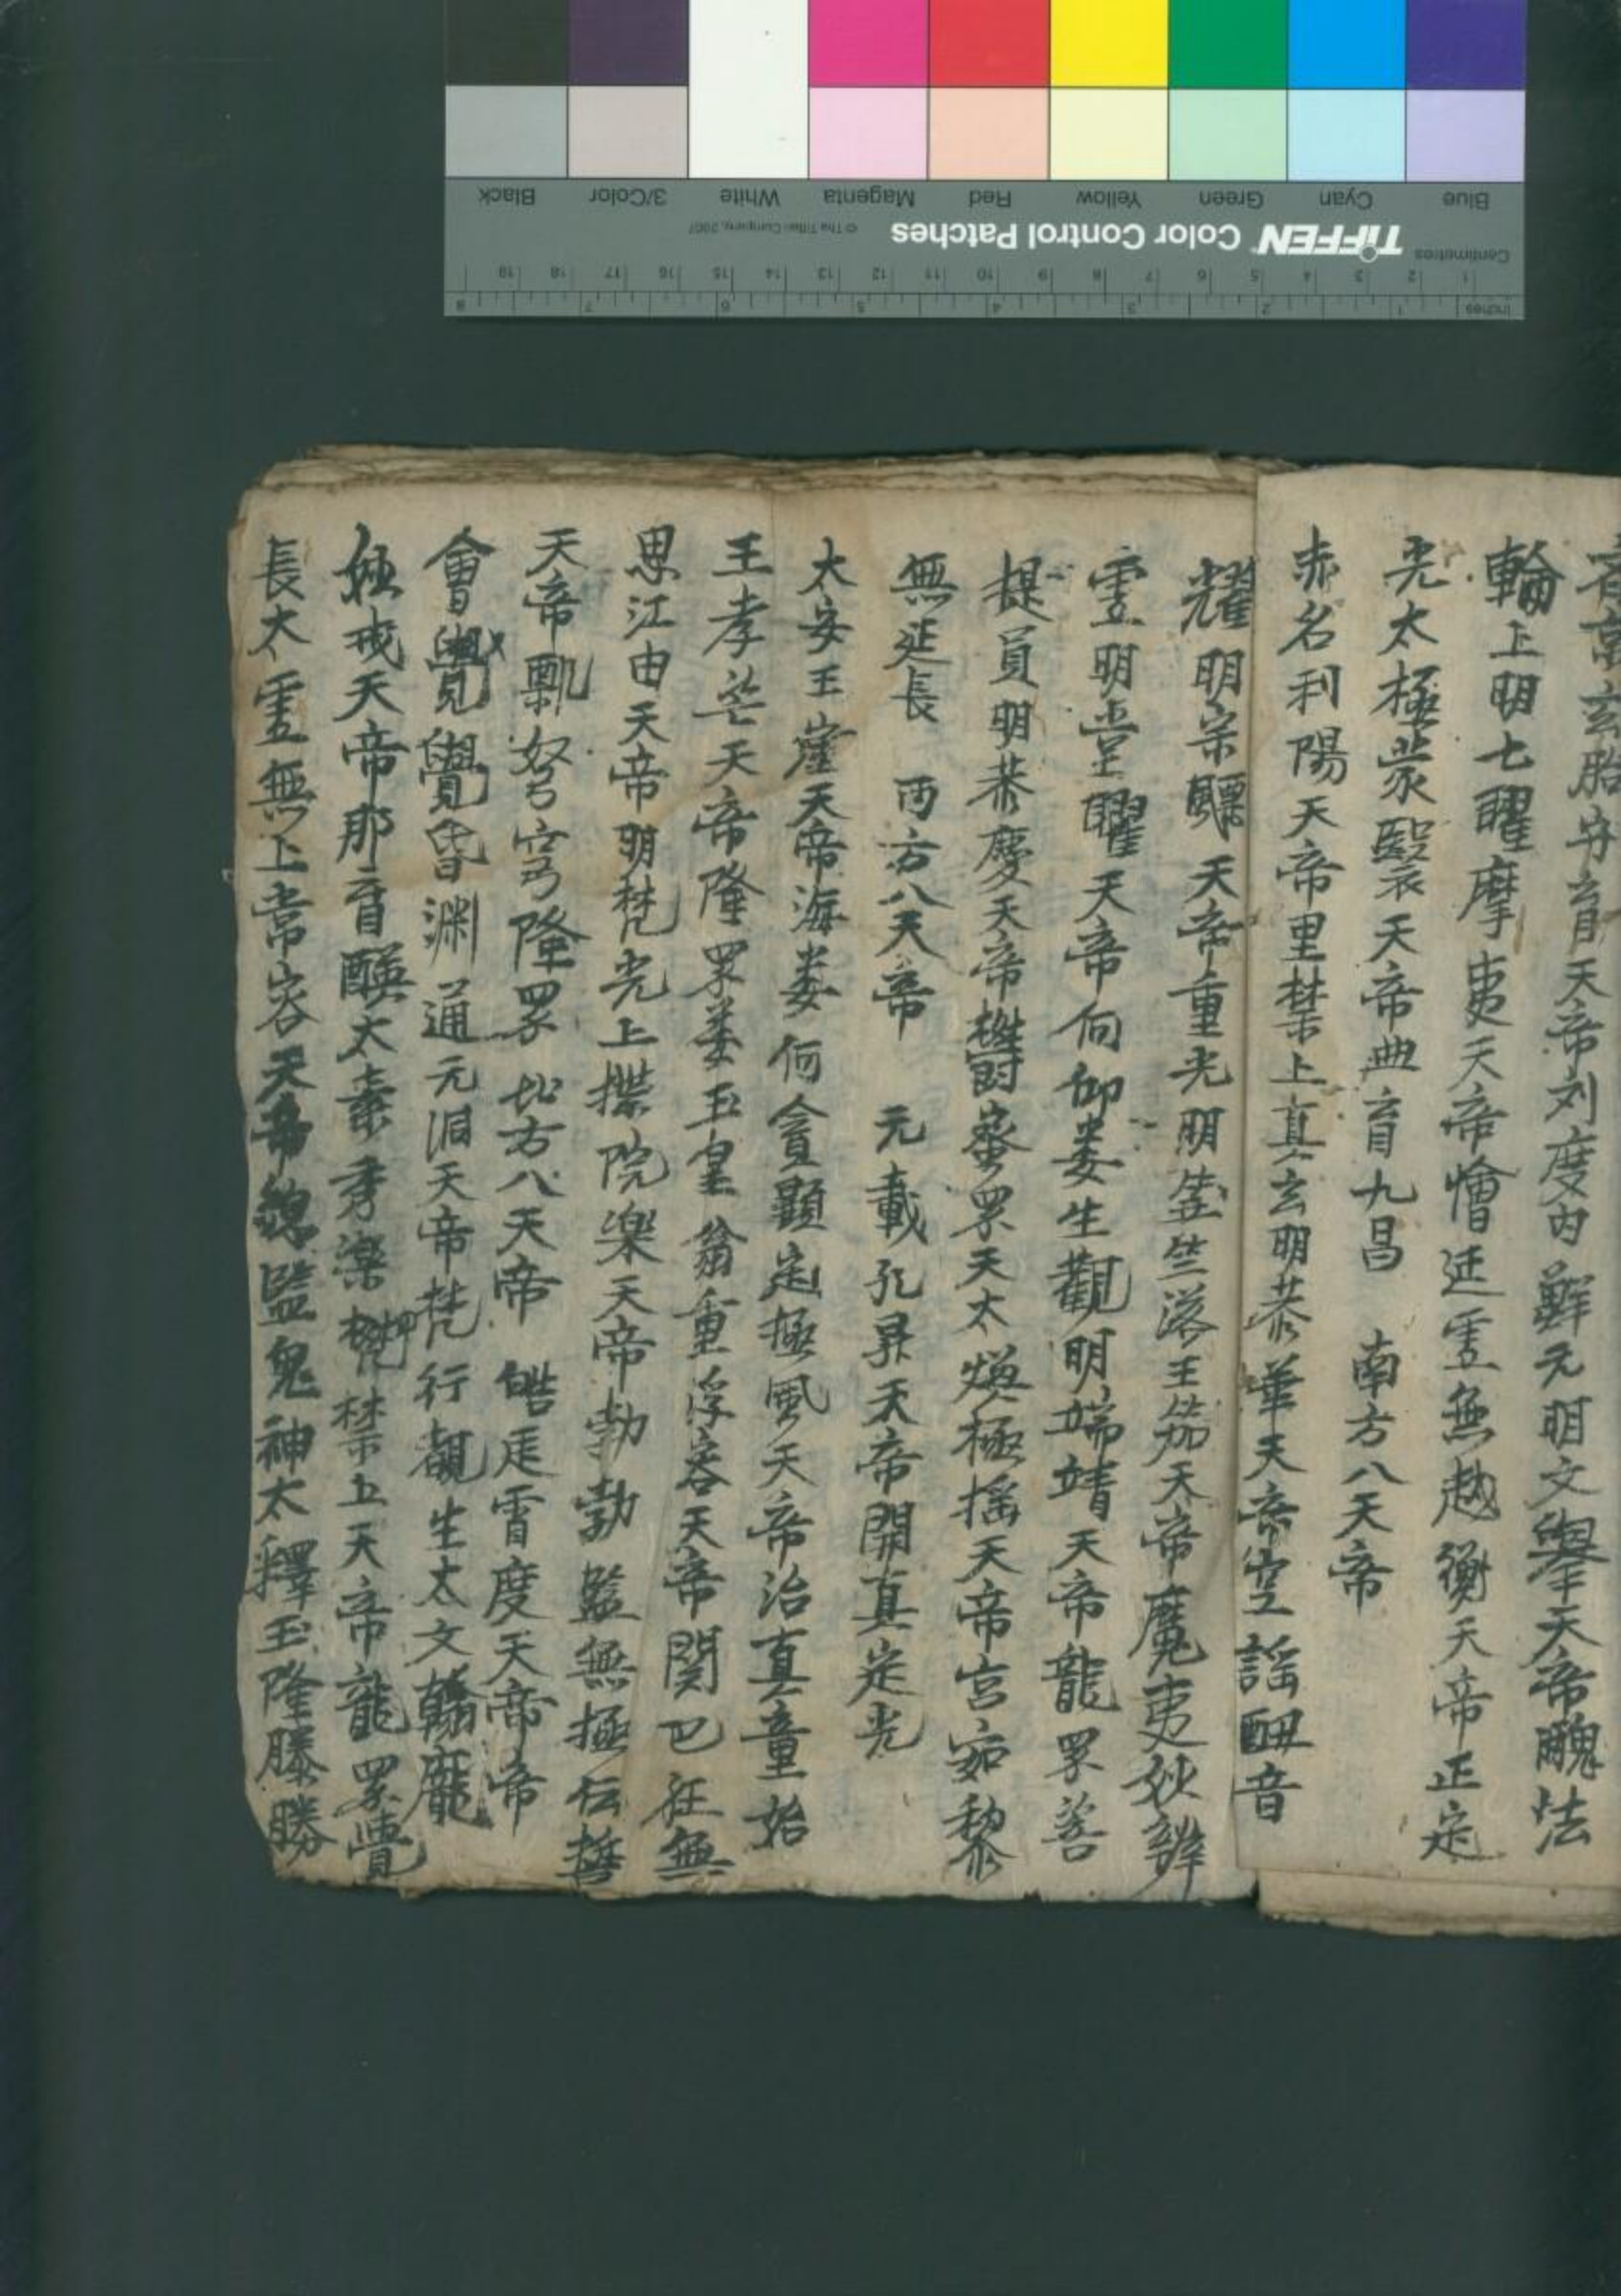 Blue Cyan Green Yellow Red Magenta White 3/Color Black
TIFFEN Color Control Patches © The Tiffen Company, 2007
Centimetres 1 2 3 4 5 6 7 8 9 10 11 12 13 14 15 16 17 18 19
Inches 1 2 3 4 5 6 7 8
玄胎 育天帝刘度內鮮元明文舉天帝醜法
輪上明七曜摩夷天帝恬迲雲無越衡天帝正定
光太極蒙翳天帝典育九昌 南方八天帝
赤名利陽天帝里禁上真玄明恭華天帝空謡醜音
耀明宗飄天帝重光明 竺落王笳天帝魔夷狄辤
雲明堂曜天帝何仰娄生觀明端靖天帝龍罗善
提員明恭慶天帝 罗天太煥極摇天帝宫 黎
無延長 西方八天帝 元載孔昇天帝開真定光
太安王崖天帝海娄何 顯定極風天帝治真童始
王孝芒天帝隆罗娄玉皇翁重浮容天帝関巴征無
思江由天帝明梵光上揲院楽天帝勃勃監無極伝
天帝 弩穹隆罗北方八天帝 皓庭霄度天帝帝
會覺覺昏渊通元洞天帝梵行觀生太文翰龐
極戒天帝那育醵太素秀楽 禁上天帝龍罗
長太雲無上常容天帝 監鬼神太釋玉隆滕勝